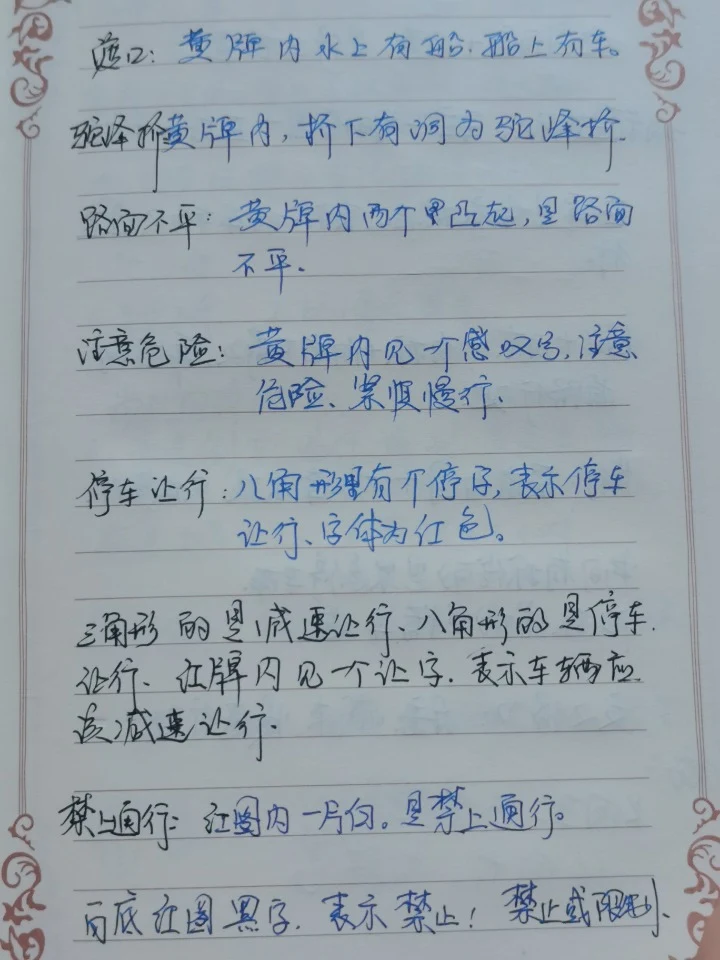 渡口: 黄牌内水上有船、船上有车。
驼峰桥黄牌内，桥下有洞为驼峰桥.
路面不平: 黄牌内两个黑凸起，是路面
不平.
注意危险: 黄牌内见一个感叹号，注意
危险、紧慢行.
停车让行: 八角形里有个停字，表示停车
让行、字体为红色。
三角形的是减速让行、八角形的是停车.
让行、红牌内见一个让字. 表示车辆应
该减速让行.
禁止通行: 红圈内一片白。是禁止通行。
白底红圈黑字. 表示禁止! 禁止或限制.